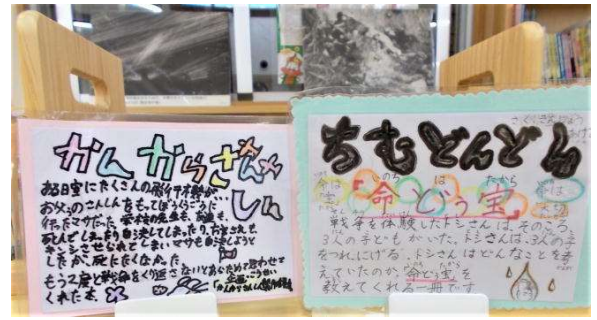 かんからさんしん
ある日空にたくさんの飛行木幾が
お父うのさんしんをもってぼうくうごうに
行ったマサだった。学校の先生も、友達も、
死んでしまったり自決してしまったり、
してしまいマサも自決しようと
したが、死にたくなかった
もう2度と戦争をくり返さないとあらためて思わせて
くれた本。
ちむどんどん
いのち は たから
命どぅ宝
命は
宝
戦争を体験したトシさんは、そのころ、
3人の子どもがいた。トシさんは、3人の子
をつれ、にげる。トシさんはどんなことを考
えていたのか 命どぅ宝を
教えてくれる一冊です